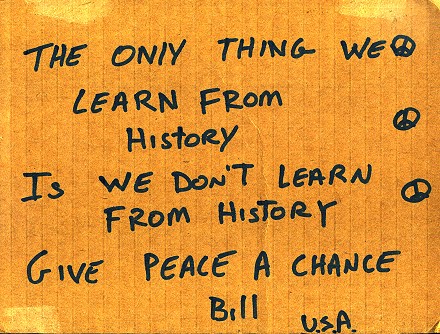 THE ONLY THING WE
LEARN FROM
HISTORY
Is WE DON'T LEARN
FROM HISTORY
GIVE PEACE A CHANCE
Bill
U.S.A.